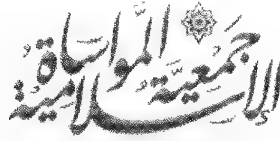 جمعية المواساة
الإسلامية